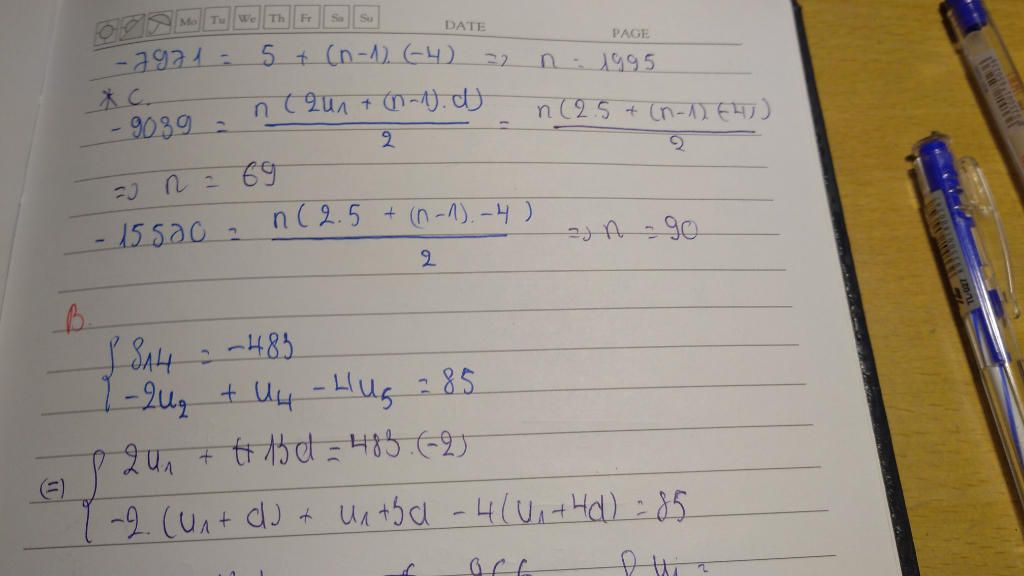 Mo Tu We Th Fr Sa Su DATE PAGE
-7971 = 5 + (n-1).(-4) => n = 1995
* C.
-9039 = n(2u1 + (n-1).d) / 2 = n(2.5 + (n-1)(-4)) / 2
=> n = 69
-15570 = n(2.5 + (n-1).-4) / 2 => n = 90
B.
{ S14 = -483
-2u2 + u4 - 4u5 = 85
(=) { 2u1 + 13d = 483.(-2)
-2.(u1 + d) + u1+3d - 4(u1+4d) = 85